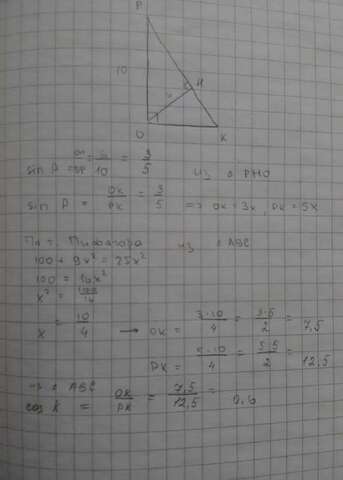 P
10
H
6
O
K
sin P = OH/OP = 6/10 = 3/5 из △ PHO
sin P = OK/PK = 3/5 => OK = 3x, PK = 5x
По т. Пифагора из △ ABC
100 + 9x² = 25x²
100 = 16x²
x² = 100/16
x = 10/4 → OK = 3·10/4 = 3·5/2 = 7,5
PK = 5·10/4 = 5·5/2 = 12,5
из △ ABC
cos K = OK/PK = 7,5/12,5 = 0,6